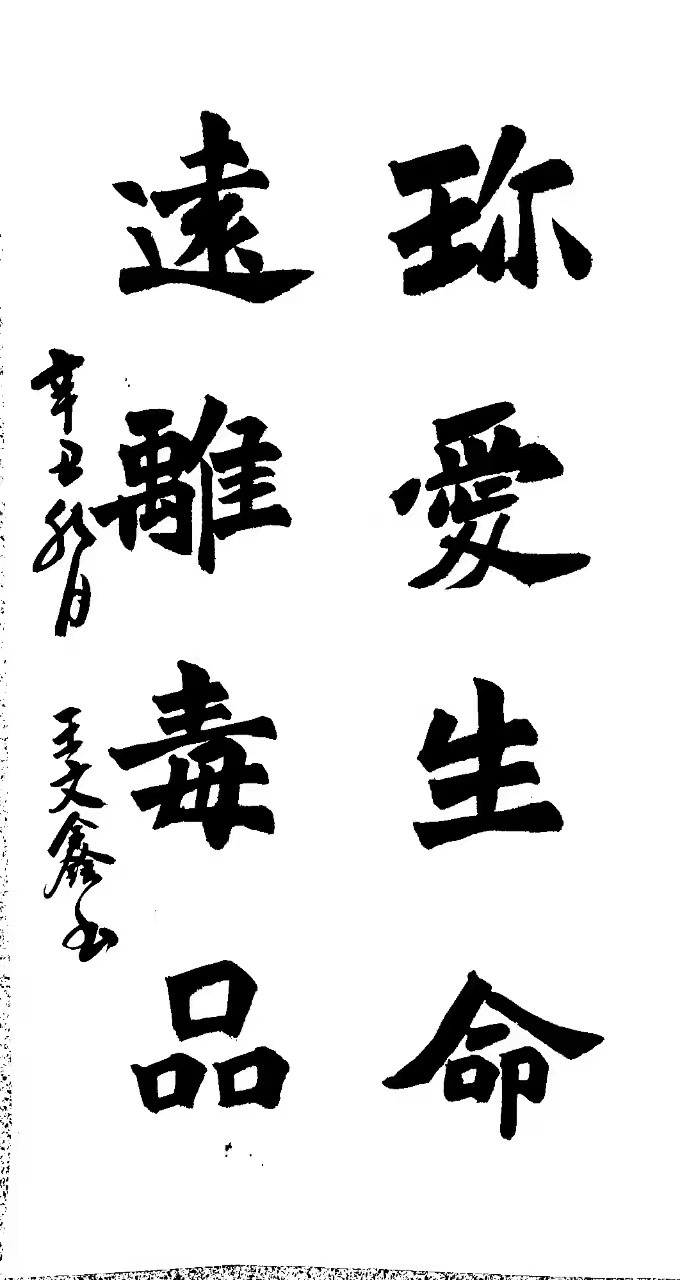 珎愛生命
遠離毒品
辛丑秋月 王文鑫书